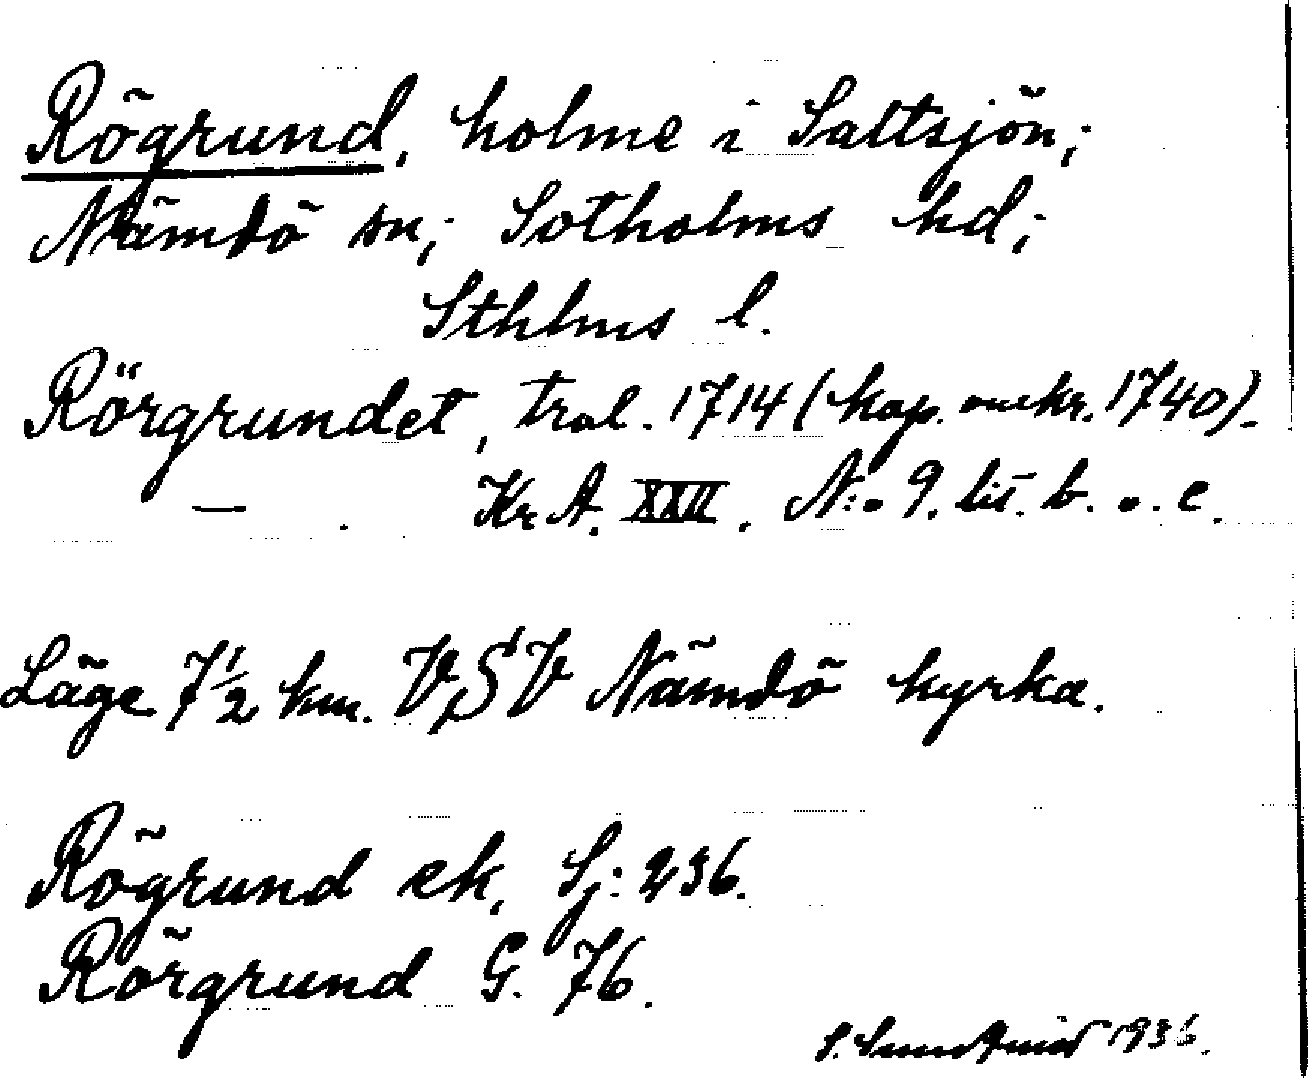 Rögrund, holme i Saltsjön;
Nämdö sn; Sotholms hd;
Sthlms l.
Rörgrundet, tral. 1714 (kap. omkr. 1740).
— . Kr A. XXII. N:o 9. lit. b. o. c.
Läge 7 1/2 km. VSV Nämdö kyrka.
Rögrund ek, Sj: 236.
Rörgrund G. 76.
S. Sundquist 1936.